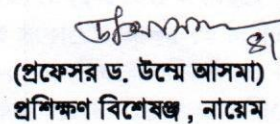 (প্রফেসর ড. উম্মে আসমা)
প্রশিক্ষণ বিশেষজ্ঞ, নায়েম